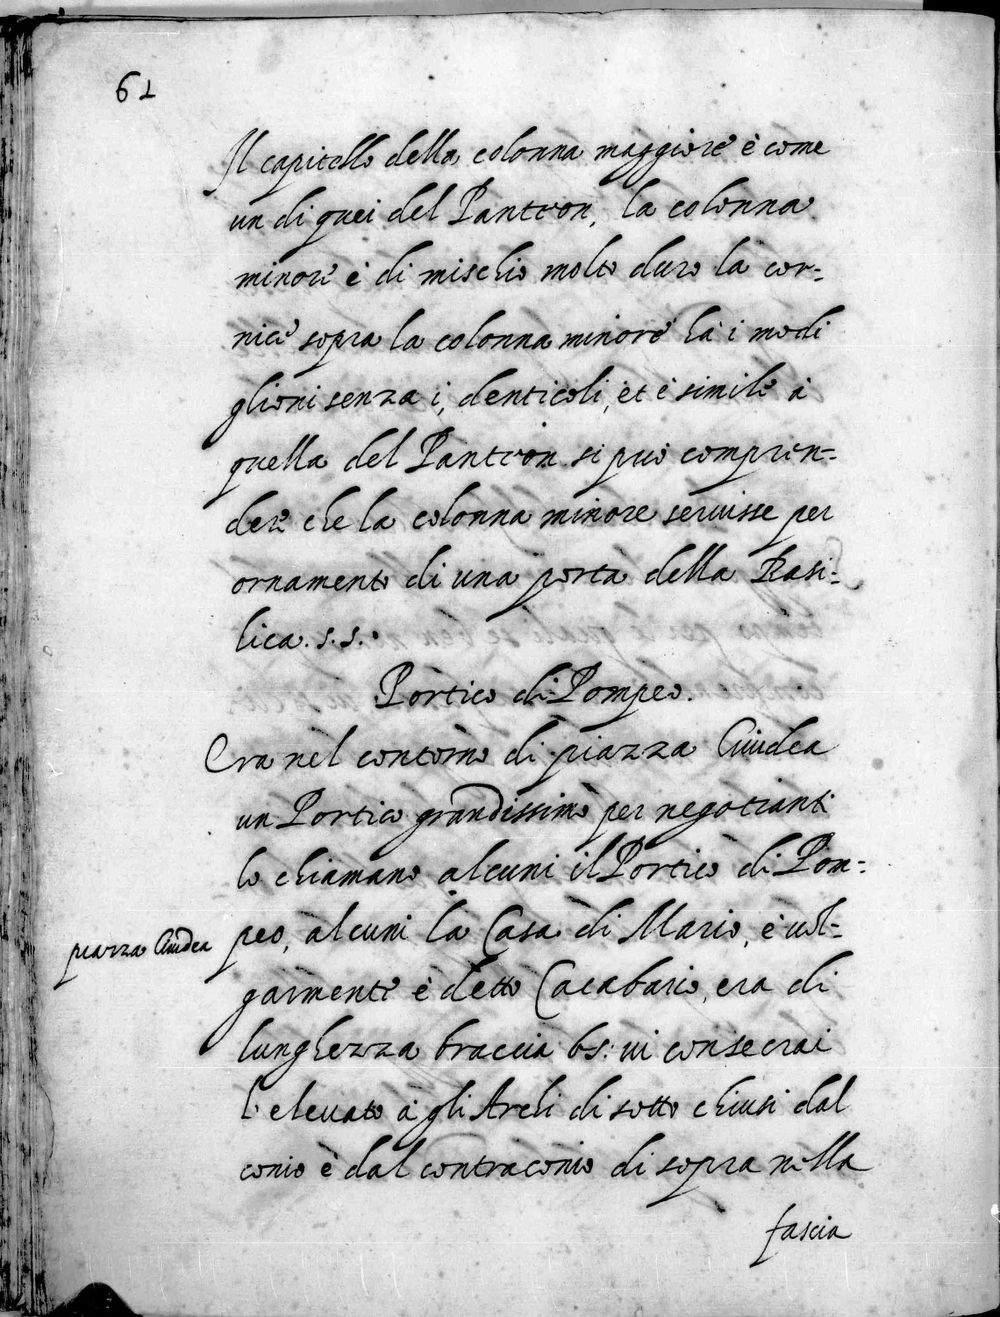 62
Il capitello della colonna maggiore è come
un di quei del Panteon, la colonna
minore è di mischio molto duro la cor-
nice sopra la colonna minore hà i modi
glioni senza i, denticoli, et è simile à
quella del Panteon si può compren-
dere che la colonna minore seruisse per
ornamento di una porta della Basi-
lica. s. s.
Portico di Pompeo.
Era nel contorno di piazza Giudea
un Portico grandissimo per negotianti
lo chiamano alcuni il Portico di Pom-
piazza Giudea
peo, alcuni la Casa di Mario, è uol-
garmente è detto Cacabario, era di
lunghezza braccia bs: ui consecrai
l'eleuato à gli Archi di sotto chiusi dal
conio è dal contraconio di sopra nella
fascia